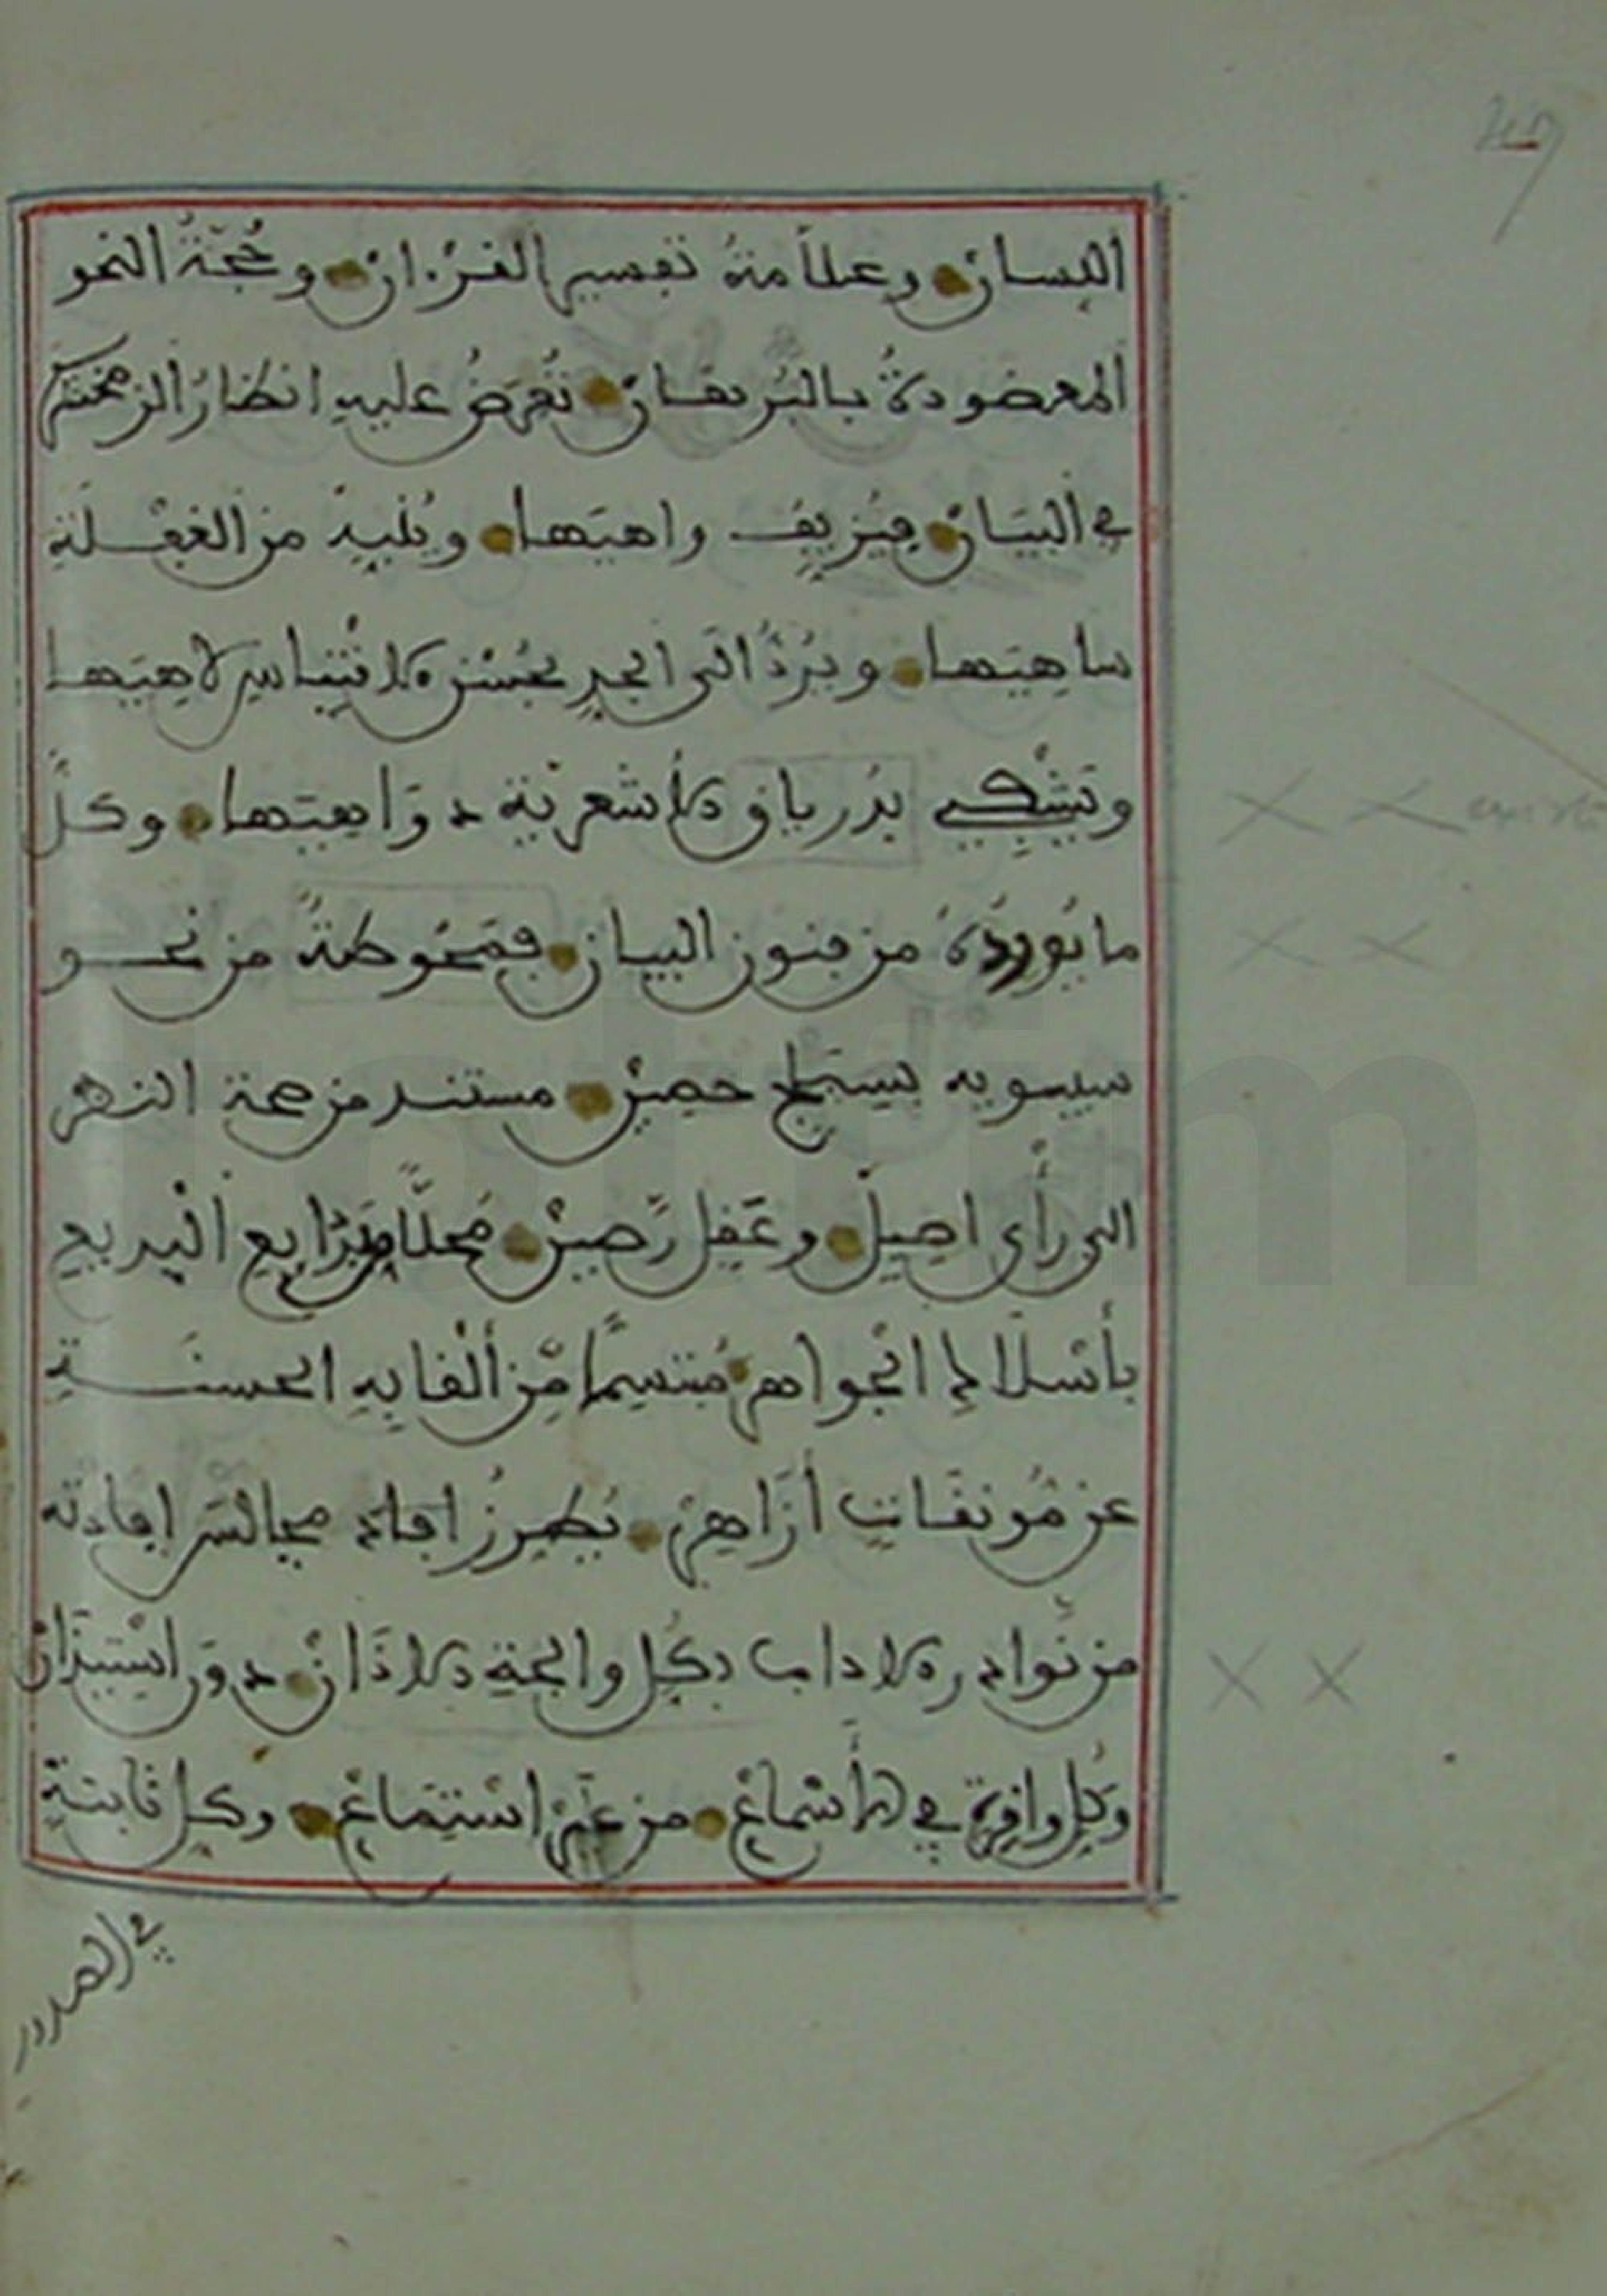 اللسانْ وعلاَّمةُ تفسير القرْءانْ وحُجّةُ النحو
المعضودةُ بالبُرهانْ تُعرَضُ عليه انظارُ الزمخشري
في البَيَانْ فيُزيِّف واهيَها ويُنبِّهُ من الغفْلةِ
ساهِيَها ويَرُدُّ الى الجدِّ بحُسْن الاقْتِباسِ لاهِيَها
ويَشْفِي بدُرياق الأشعرية دوَاهيَها وكلّ
ما يُورِدُهُ من فنون البيان فمَحُوطةٌ من نحو
سيبويه بسياج حصينْ مستند من صحة النظر
الى رأي اصِيلْ وعَقل رَصِينْ مُحلاًّ من بدايع البديع
بأسْلاك الجواهر مُبتسِمًا مِن ألقابِه الحسنةِ
عن مُونِقَاتِ أزاهِرْ يُطرِّزُ افاد مجالس افادته
من نوادر الاداب بكل والجةِ الاذَانْ دون اسْتِيذانْ
وكُلِّ وافِرةٍ في الأسْماعْ من غيْر اسْتِمَاعْ وكل ثابتةٍ
في الصدور